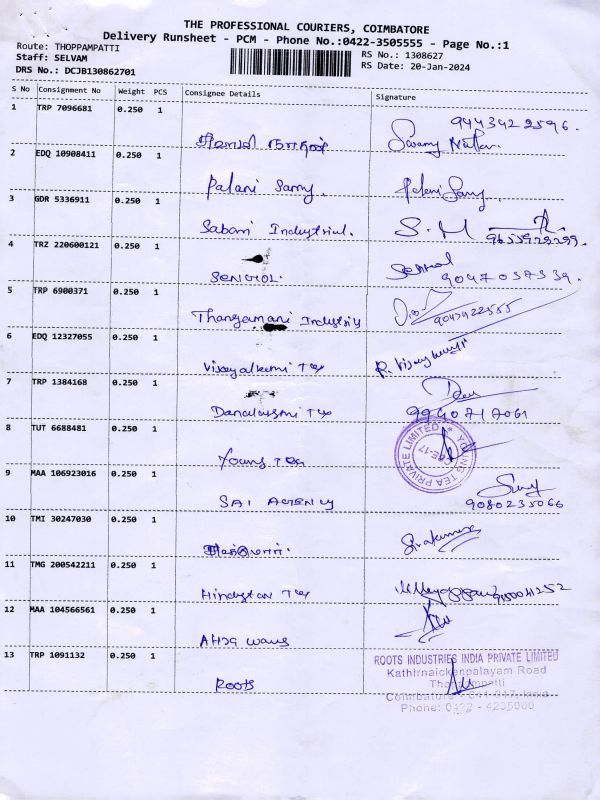 THE PROFESSIONAL COURIERS, COIMBATORE
Delivery Runsheet - PCM - Phone No.:0422-3505555 - Page No.:1
Route: THOPPAMPATTI
Staff: SELVAM
DRS No.: DCJB130862701
RS No.: 1308627
RS Date: 20-Jan-2024
S No Consignment No Weight PCS Consignee Details Signature
1 TRP 7096681 0.250 1
9443422596.
2 EDQ 10908411 0.250 1
Palani Samy.
3 GDR 5336911 0.250 1
Sabari Industrial. S. M
4 TRZ 220600121 0.250 1
SENTHIL.
5 TRP 6900371 0.250 1
Thangamani
6 EDQ 12327055 0.250 1
R. Vijayakumar
7 TRP 1384168 0.250 1
9940717061
8 TUT 6688481 0.250 1
YOUNG TEA PRIVATE LIMITED
CBE-17
Young Tex
9 MAA 106923016 0.250 1
SAI AGENCY 9080235066
10 TMI 30247030 0.250 1
Sivakumar
11 TMG 200542211 0.250 1
Hindustan Tex
12 MAA 104566561 0.250 1
13 TRP 1091132 0.250 1
ROOTS
ROOTS INDUSTRIES INDIA PRIVATE LIMITED
Kathirnaickenpalayam Road
Thoppampatti
Coimbatore - 641 017, India
Phone: 0422 - 4235800